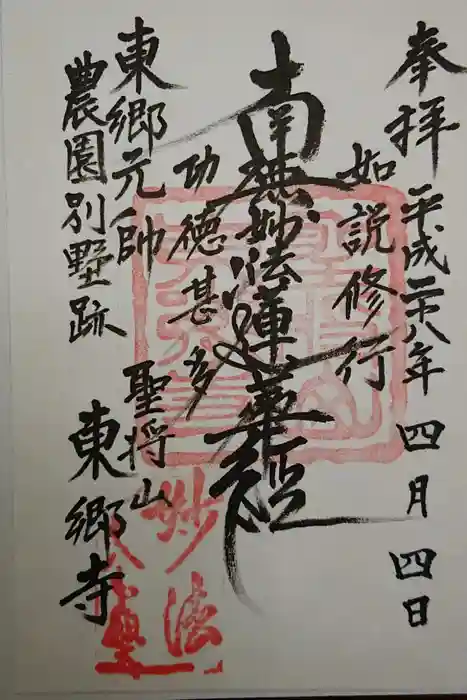 奉拝 平成二十八年 四月 四日
如説修行
南無妙法蓮華経
功徳甚多
東郷元帥 聖将山
農園別墅跡 東郷寺
妙法